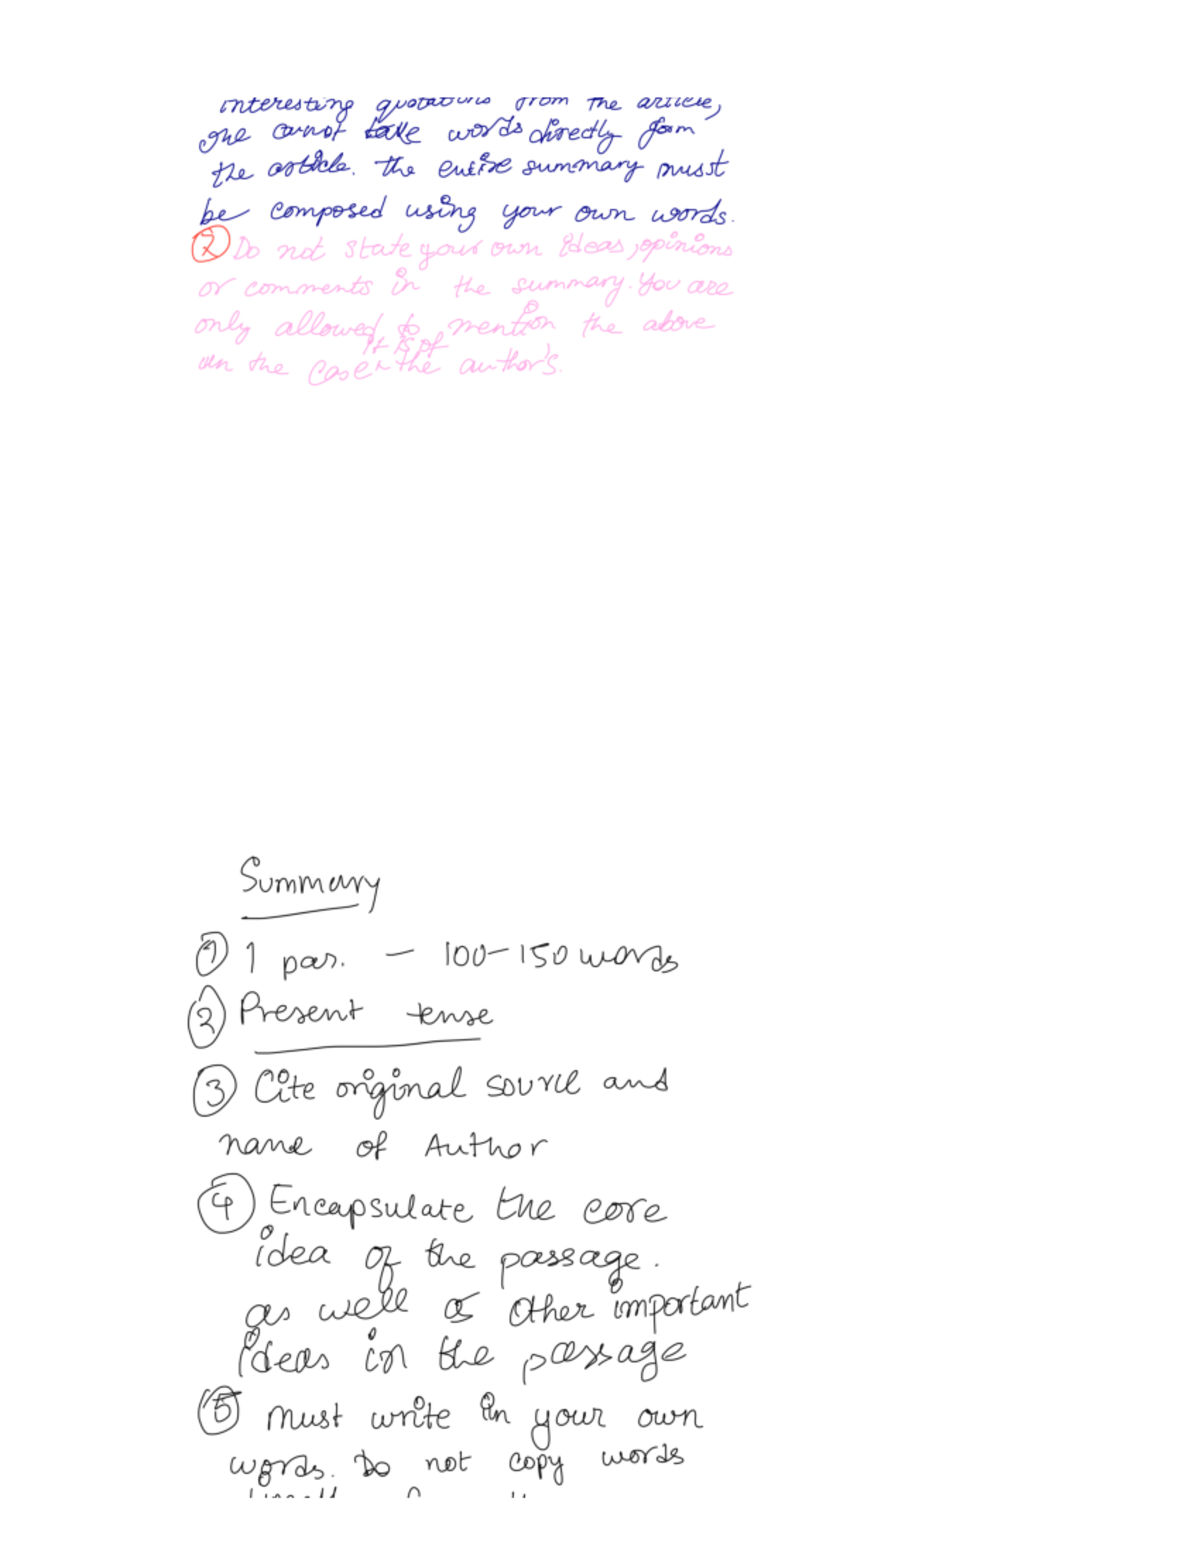 interesting quotations from the article,
one cannot take words directly from
the article. The entire summary musst
be composed using your own words.
② Do not state your own ideas, opinions
or comments in the summary. You are
only allowed to mention the above
it is of
in the case the author's.
Summary
① 1 par. — 100-150 words
② Present tense
③ Cite original source and
name of Author
④ Encapsulate the core
idea of the passage.
as well as other important
ideas in the passage
⑤ must write in your own
words. Do not copy words